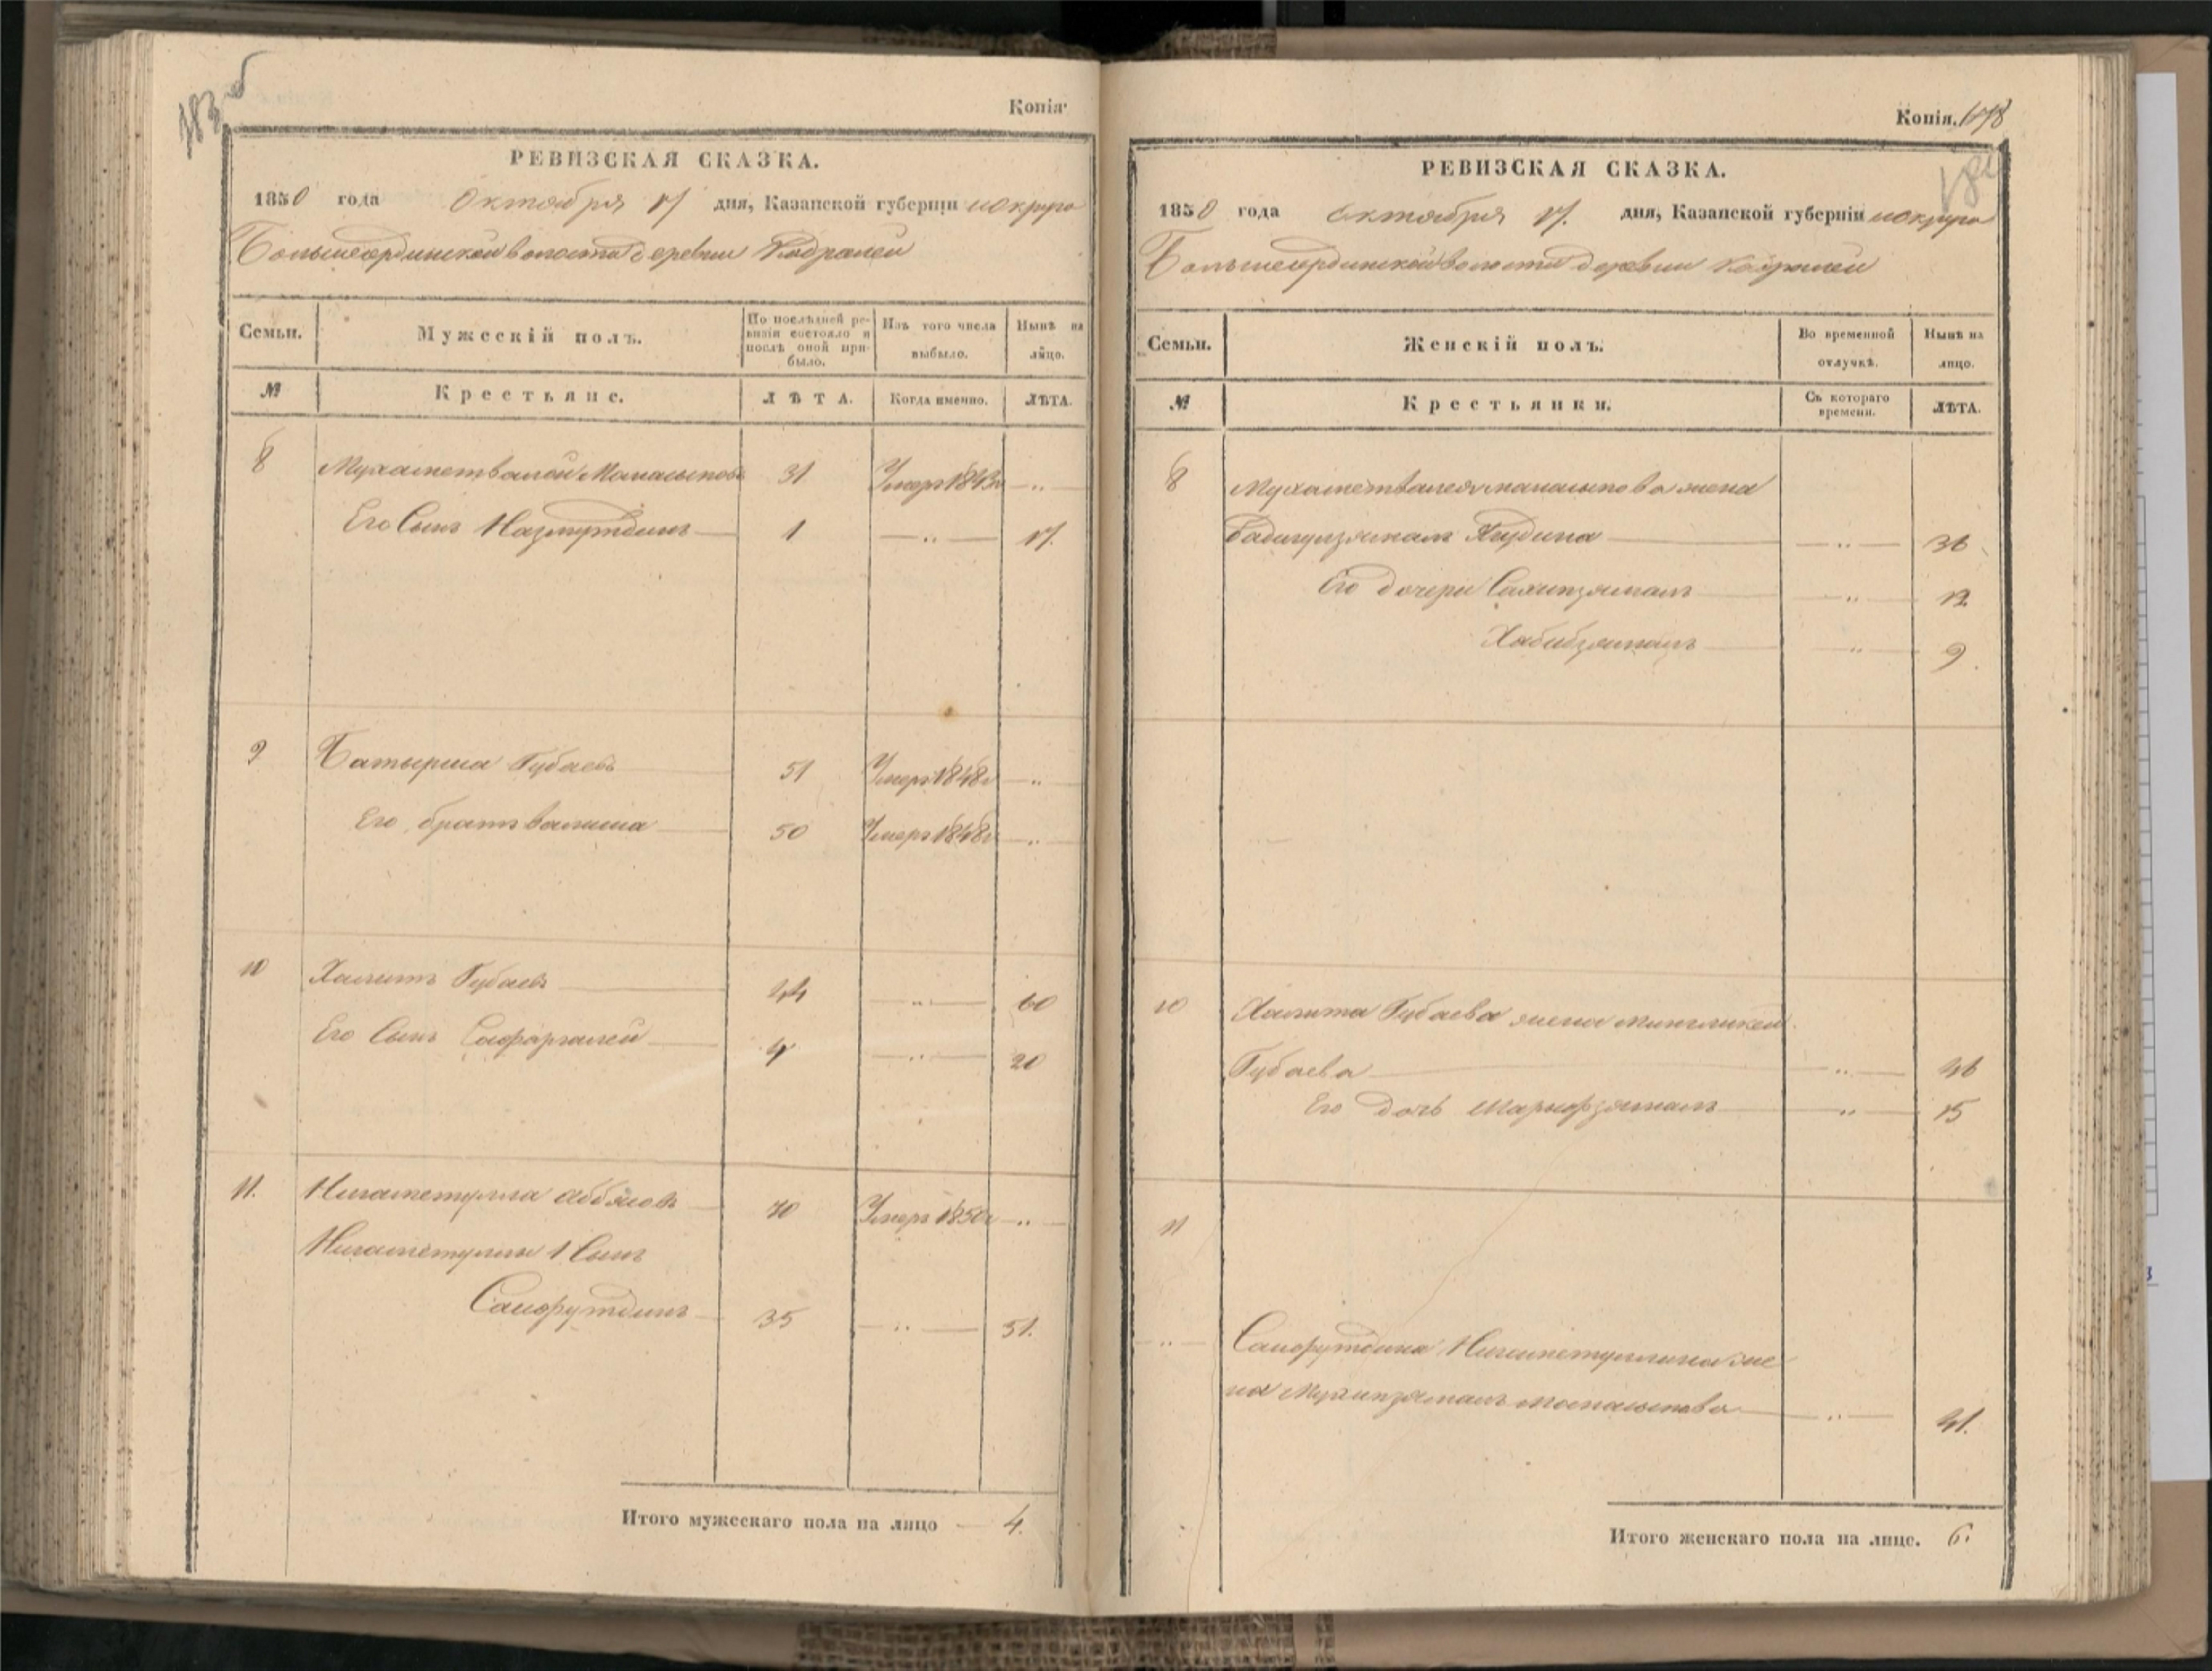 183 об
Копія
РЕВИЗСКАЯ СКАЗКА.
1850 года Октября 17 дня, Казанской губерніи округа
Большеординской волости деревни Кадралеи
Семьи. Мужескій полъ. По послѣдней ревизіи состояло и послѣ оной прибыло. Изъ того числа выбыло. Нынѣ на лицо.
№ Крестьяне. ЛѢТА. Когда именно. ЛѢТА.
8 Мухаметвалей Манасыповъ 31 Умеръ 1843г — „ —
Его Сынъ Назмутдинъ — 1 — „ — 17.
9 Батырша Губаевъ 51 Умеръ 1848г — „
Его братъ Валиша 50 Умеръ 1848г — „
10 Халитъ Губаевъ 44 — „ — 60
Его Сынъ Сафаргалей 4 — „ — 20
11. Нигаметулла Аббясовъ 70 Умеръ 1850г — „
Нигаметуллы 1 Сынъ
Сайфутдинъ 35 — „ — 51.
Итого мужескаго пола на лицо — 4.
Копія. 178
РЕВИЗСКАЯ СКАЗКА.
1850 года Октября 17. дня, Казанской губерніи округа
Большеординской волости деревни Кадралеи
Семьи. Женскій полъ. Во временной отлучкѣ. Нынѣ на лицо.
№ Крестьянки. Съ котораго времени. ЛѢТА.
8 Мухаметвалея Манасыпова жена
Бадигулзямалъ — „ — 36
Его дочери Сахипзямалъ — „ — 12
Хабибзямалъ — „ — 9.
10 Халита Губаева жена Мингликей
Губаева — „ — 46
Его дочь Шарифзямалъ — „ — 15
11
— „ — Сайфутдина Нигаметуллина же
на Мухипзямалъ Манасыпова — „ — 41.
Итого женскаго пола на лице. 6.